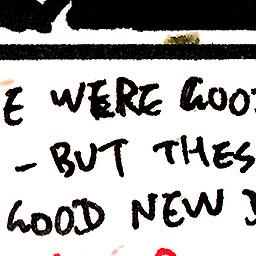 E WERE GOO
- BUT THES
GOOD NEW